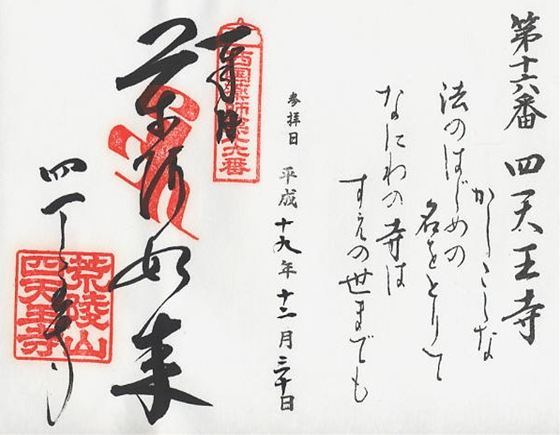 第十六番 四天王寺
かしこしな
法のはじめの
名をとりて
なにわの寺は
すえの世までも
参拝日 平成十九年十二月三十日
西国薬師第十六番
奉拝
薬師如来
四天王寺
荒陵山
四天王寺